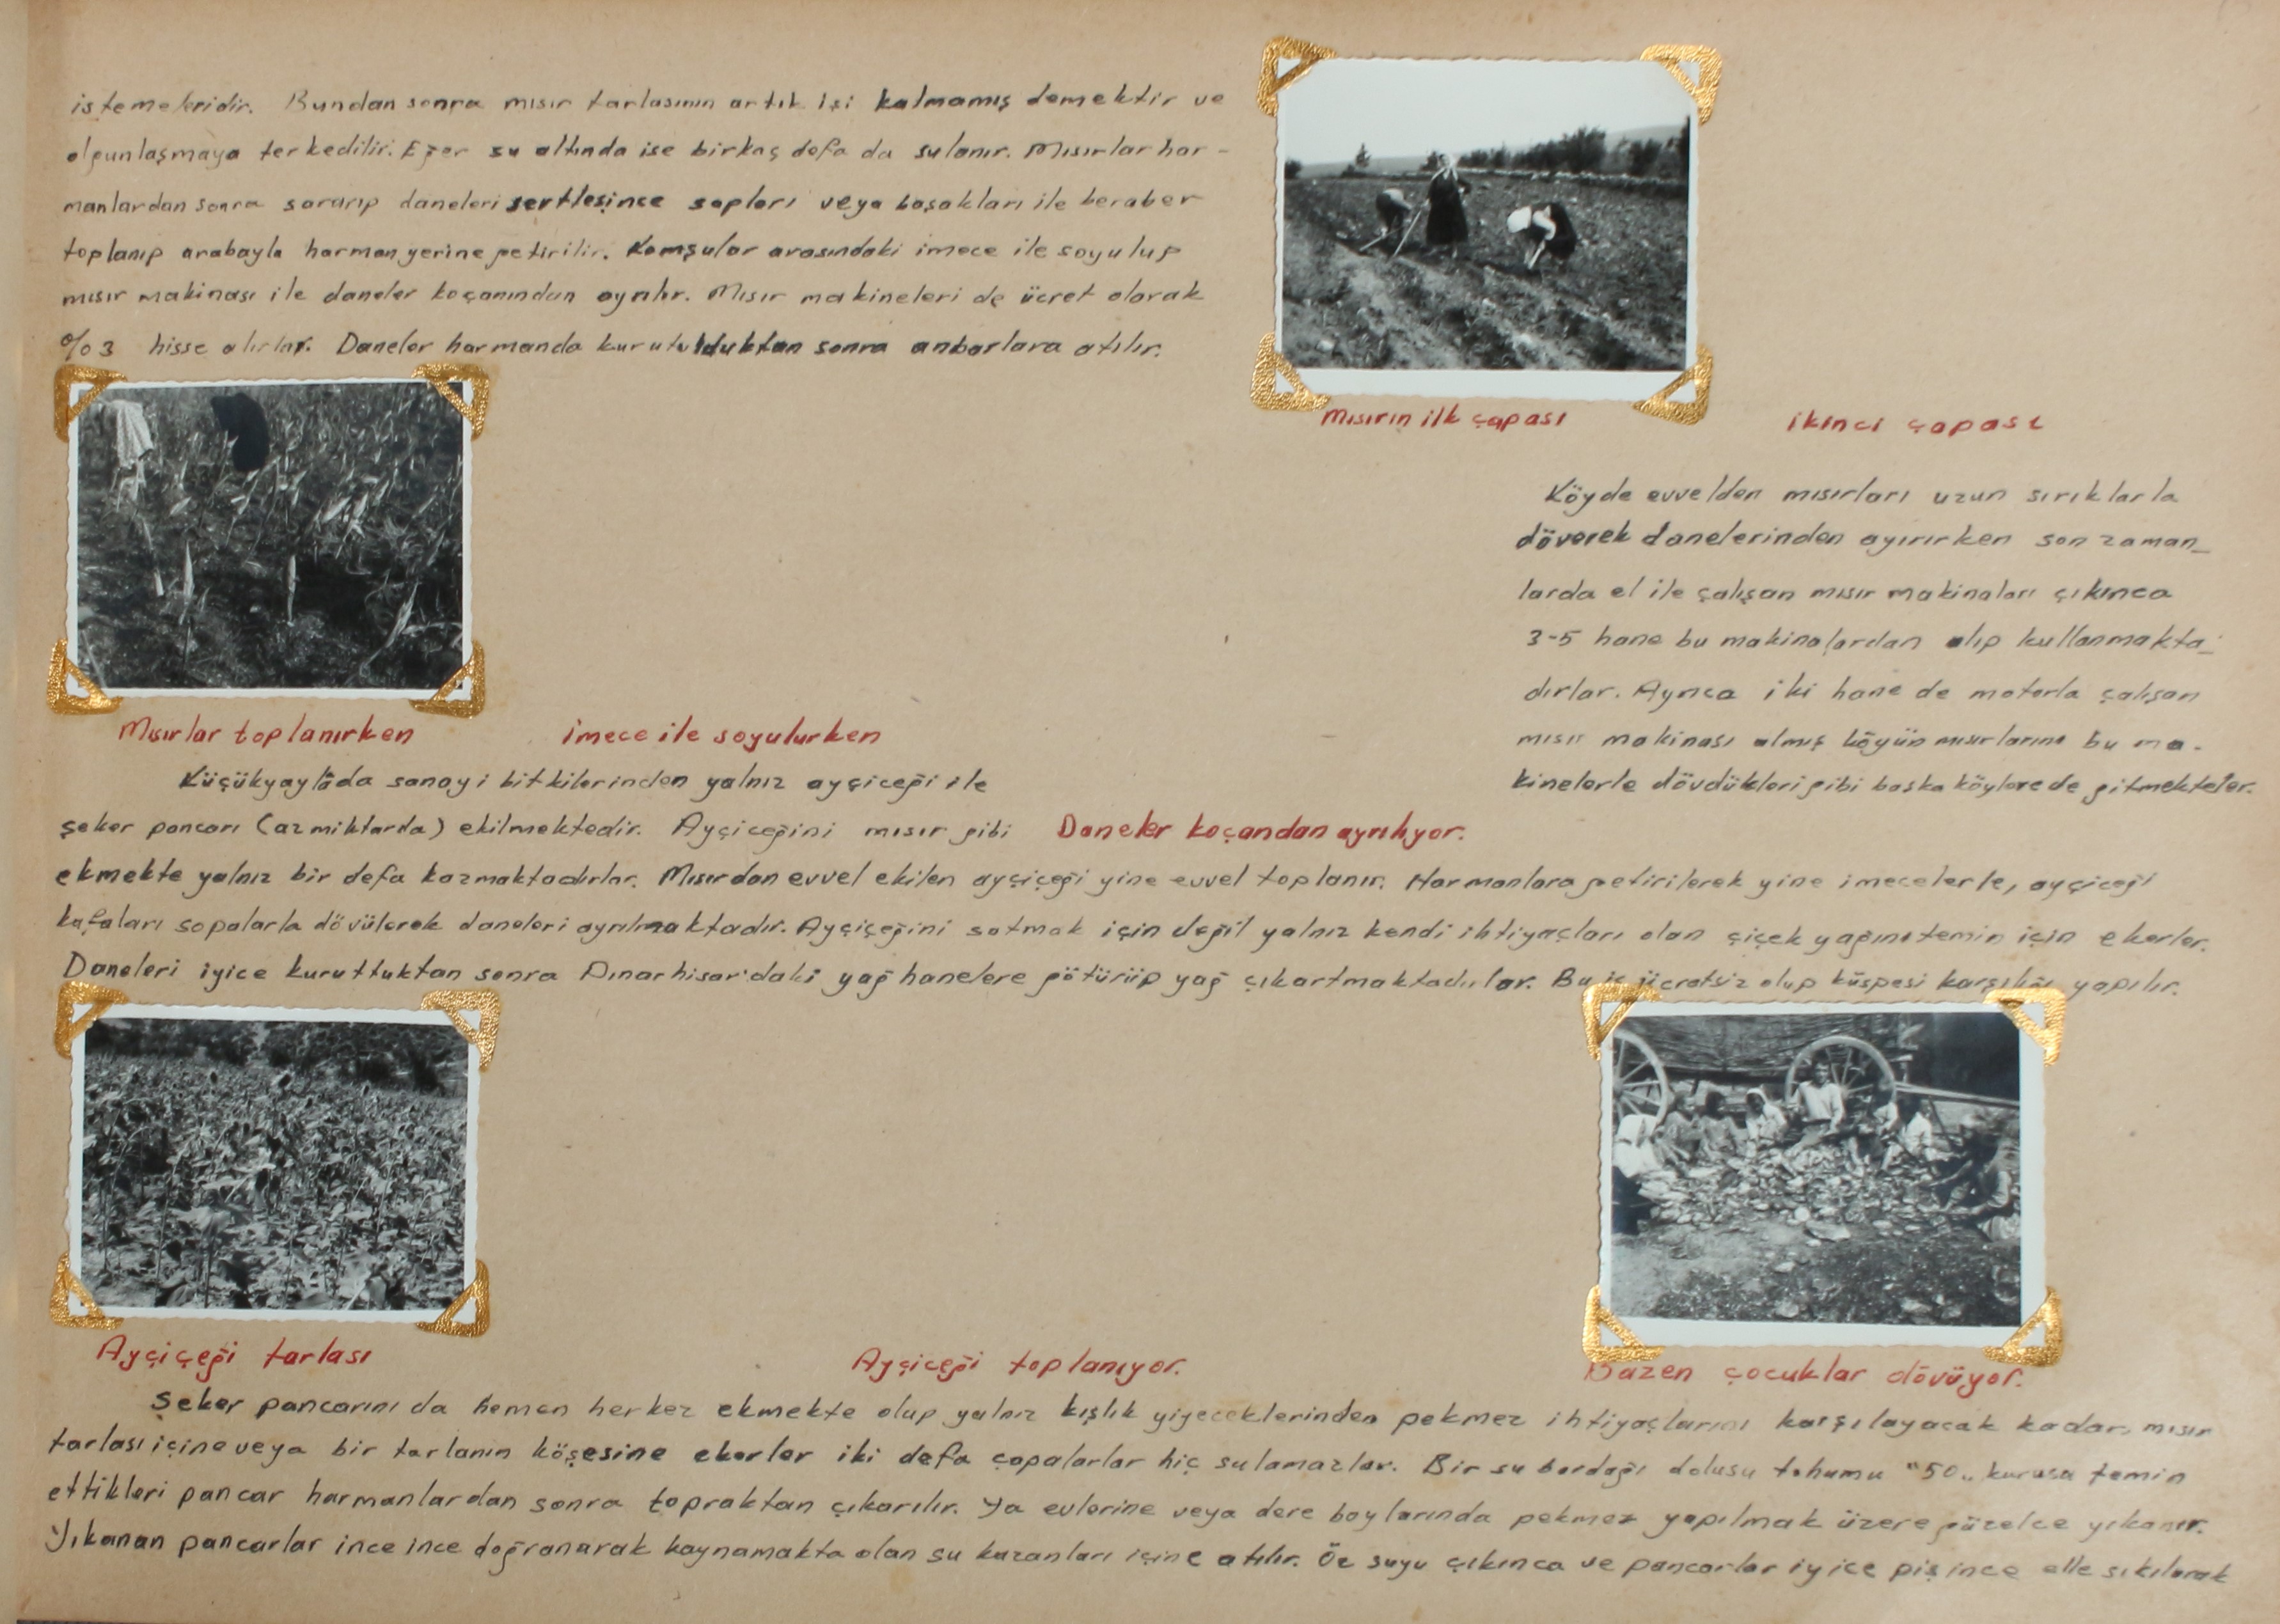 istemeleridir. Bundan sonra mısır tarlasının artık işi kalmamış demektir ve
olgunlaşmaya terkedilir. Eğer su altında ise birkaç defa da sulanır. Mısırlar har-
manlardan sonra sararıp daneleri sertleşince sapları veya başakları ile beraber
toplanıp arabayla harman yerine getirilir. Komşular arasındaki imece ile soyulup
mısır makinası ile daneler koçanından ayrılır. Mısır makineleri de ücret olarak
%3 hisse alırlar. Daneler harmanda kurutulduktan sonra anbarlara atılır.
Mısırın ilk çapası
ikinci çapası
Köyde evvelden mısırları uzun sırıklarla
döverek danelerinden ayırırken son zaman-
larda el ile çalışan mısır makinaları çıkınca
3-5 hane bu makinalardan alıp kullanmakta-
dırlar. Ayrıca iki hane de motorla çalışan
mısır makinası almış köyün mısırlarını bu ma-
kinelerle dövdükleri gibi başka köylere de gitmekteler.
Mısırlar toplanırken
İmece ile soyulurken
Küçükyaylâda sanayi bitkilerinden yalnız ayçiçeği ile
şeker pancarı (az miktarda) ekilmektedir. Ayçiçeğini mısır gibi
Daneler koçandan ayrılıyor.
ekmekte yalnız bir defa kazmaktadırlar. Mısırdan evvel ekilen ayçiçeği yine evvel toplanır. Harmanlara getirilerek yine imecelerle, ayçiçeği
kafaları sopalarla dövülerek daneleri ayrılmaktadır. Ayçiçeğini satmak için değil yalnız kendi ihtiyaçları olan çiçek yağını temin için ekerler.
Daneleri iyice kuruttuktan sonra Pınarhisar'daki yağ hanelere götürüp yağ çıkartmaktadırlar. Bu iş ücretsiz olup küspesi karşılığı yapılır.
Ayçiçeği tarlası
Ayçiçeği toplanıyor.
Bazen çocuklar dövüyor.
Şeker pancarını da hemen herkez ekmekte olup yalnız kışlık yiyeceklerinden pekmez ihtiyaçlarını karşılayacak kadar, mısır
tarlası içine veya bir tarlanın köşesine ekerler iki defa çapalarlar hiç sulamazlar. Bir su bardağı dolusu tohumu "50" kuruşa temin
ettikleri pancar harmanlardan sonra topraktan çıkarılır. Ya evlerine veya dere boylarında pekmez yapılmak üzere güzelce yıkanır.
Yıkanan pancarlar ince ince doğranarak kaynamakta olan su kazanları içine atılır. Öz suyu çıkınca ve pancarlar iyice pişince elle sıkılarak